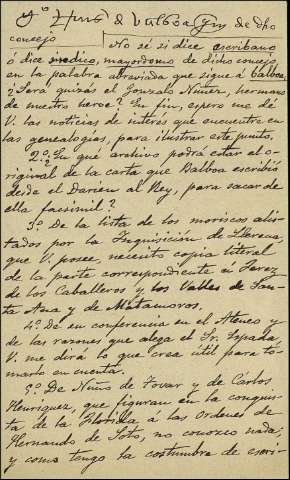 de Balboa de dho
concejo No sé si dice escribano
ó dice medico, mayordomo de dicho concejo,
en la palabra abreviada que sigue á Balboa,
¿Será quizás el Gonzalo Nuñez, hermano
de nuestro heroe? En fin, espero me dé
V. las noticias de interés que encuentre en
las genealogías, para ilustrar este punto.
2º ¿En qué archivo podrá estar el o-
riginal de la carta que Balboa escribió
desde el Darien al Rey, para sacar de
ella facsimil?
3º De la lista de los moriscos alis-
tados por la Inquisición de Llerena
que V. posee, necesito copia literal
de la parte correspondiente á Jerez
de los Caballeros y los Valles de San-
ta Ana y de Matamoros.
4º De su conferencia en el Ateneo y
de las razones que alega el Sr. Espada,
V. me dirá lo que crea útil para to-
marlo en cuenta.
De Nuño de Tovar y de Cárlos
Henriquez, que figuran en la conquis-
ta de la Florida á las ordenes de
Hernando de Soto, no conozco nada;
y como tengo la costumbre de escri-